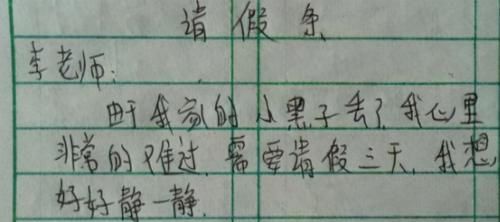 请假条
李老师:
由于我家的小黑子丢了,我心里
非常的难过,需要请假三天,我想
好好静一静.